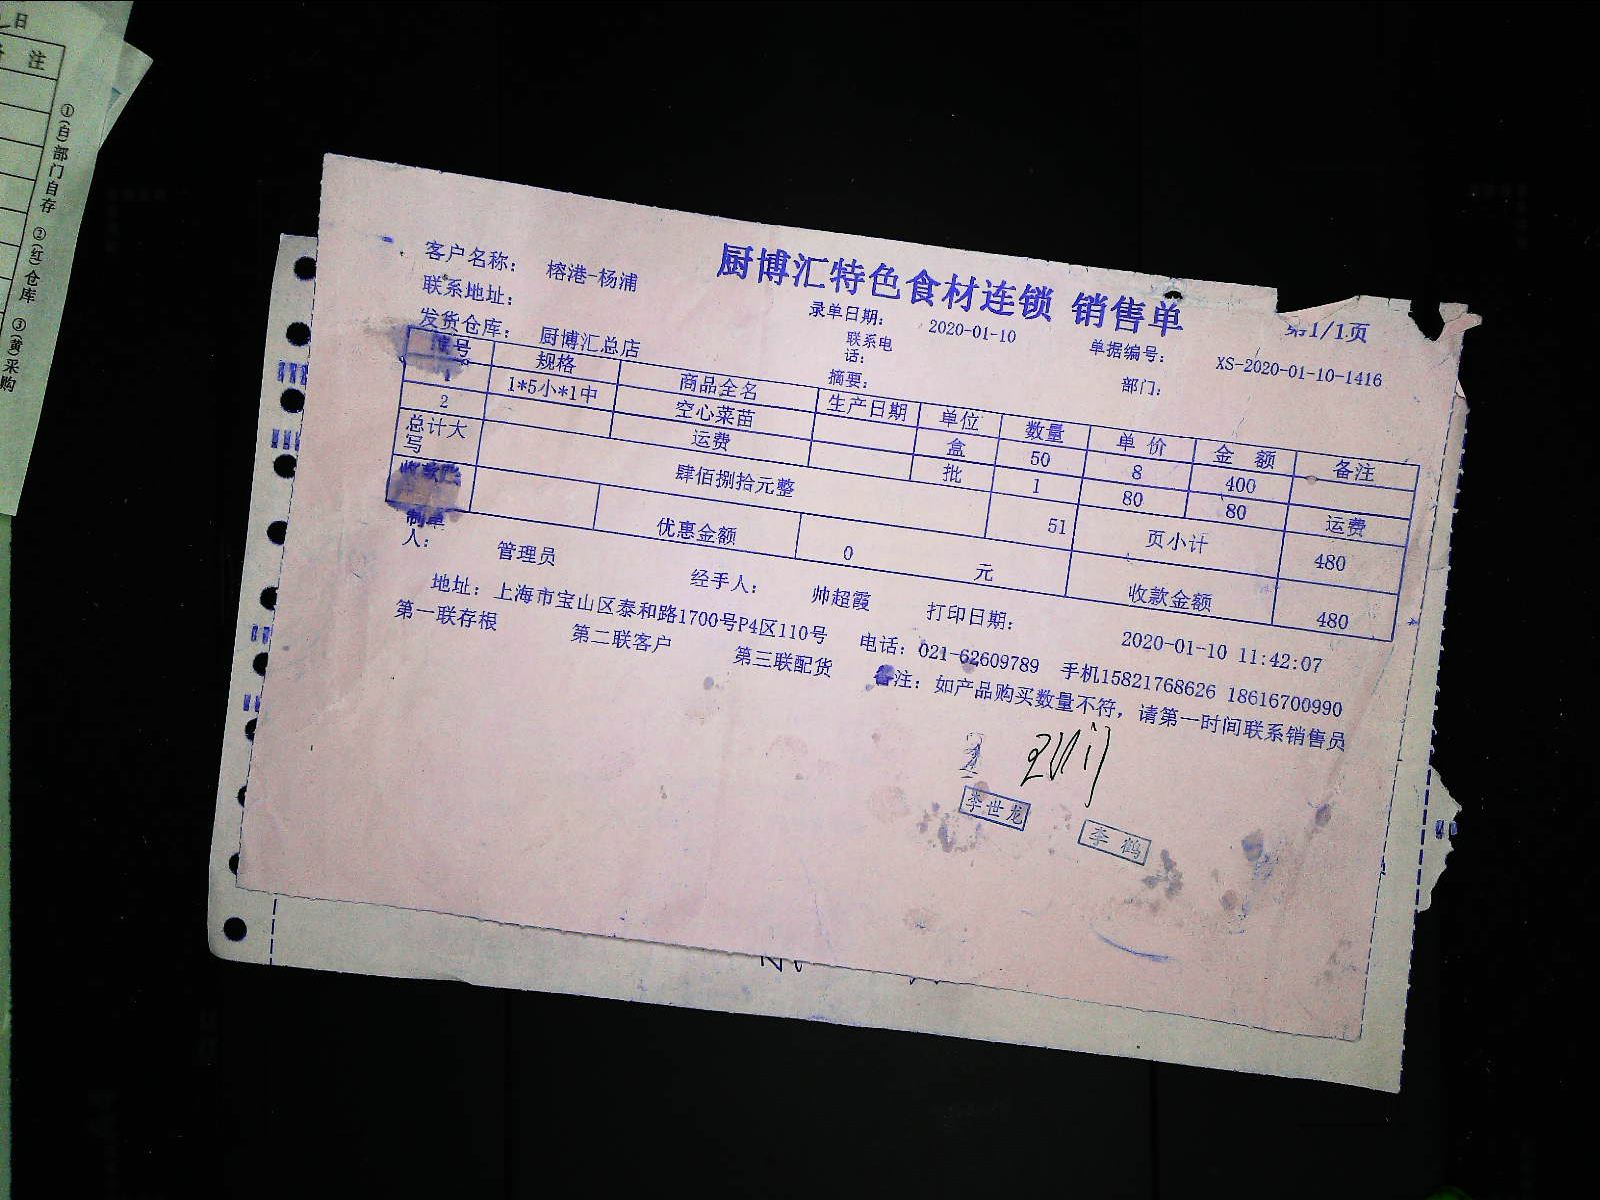 日
注
①(白)部门自存 ②(红)仓库 ③(黄)采购
厨博汇特色食材连锁 销售单
第1/1页
客户名称： 榕港-杨浦
录单日期： 2020-01-10
单据编号： XS-2020-01-10-1416
联系地址：
联系电话：
部门：
发货仓库： 厨博汇总店
摘要：
号 规格 商品全名 生产日期 单位 数量 单 价 金 额 备注
1 1*5小*1中 空心菜苗 盒 50 8 400
2 运费 批 1 80 80 运费
总计大写 肆佰捌拾元整 51 页小计 480
收款账 优惠金额 0 元 收款金额 480
制单人： 管理员 经手人： 帅超霞 打印日期： 2020-01-10 11:42:07
地址：上海市宝山区泰和路1700号P4区110号 电话：021-62609789 手机15821768626 18616700990
第一联存根 第二联客户 第三联配货 备注：如产品购买数量不符，请第一时间联系销售员
李世龙
李鹤